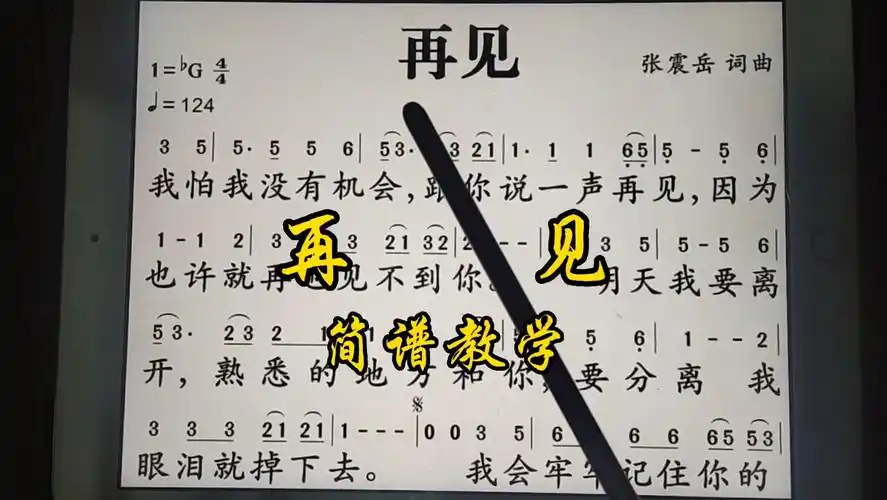 再见
1=♭G 4/4
张震岳 词曲
♩= 124
3 5 | 5· 5 5 6 | 53· 3 21 | 1· 1 1 65 | 5 - 5 6 |
我怕我没有机会,跟你说一声再见,因为
1 - 1 2 | 3 3 21 32 | 2 - - 3 5 | 5 - 5 6 |
也许就再见不到你。明天我要离
再见
简谱教学
53· 23 2 1 5 6 | 1 - - 2 |
开,熟悉的地方和你,要分离 我
3 3 3 21 21 | 1 - - - | 0 0 3 5 | 6 6 6 65 53 |
眼泪就掉下去。 我会牢牢记住你的